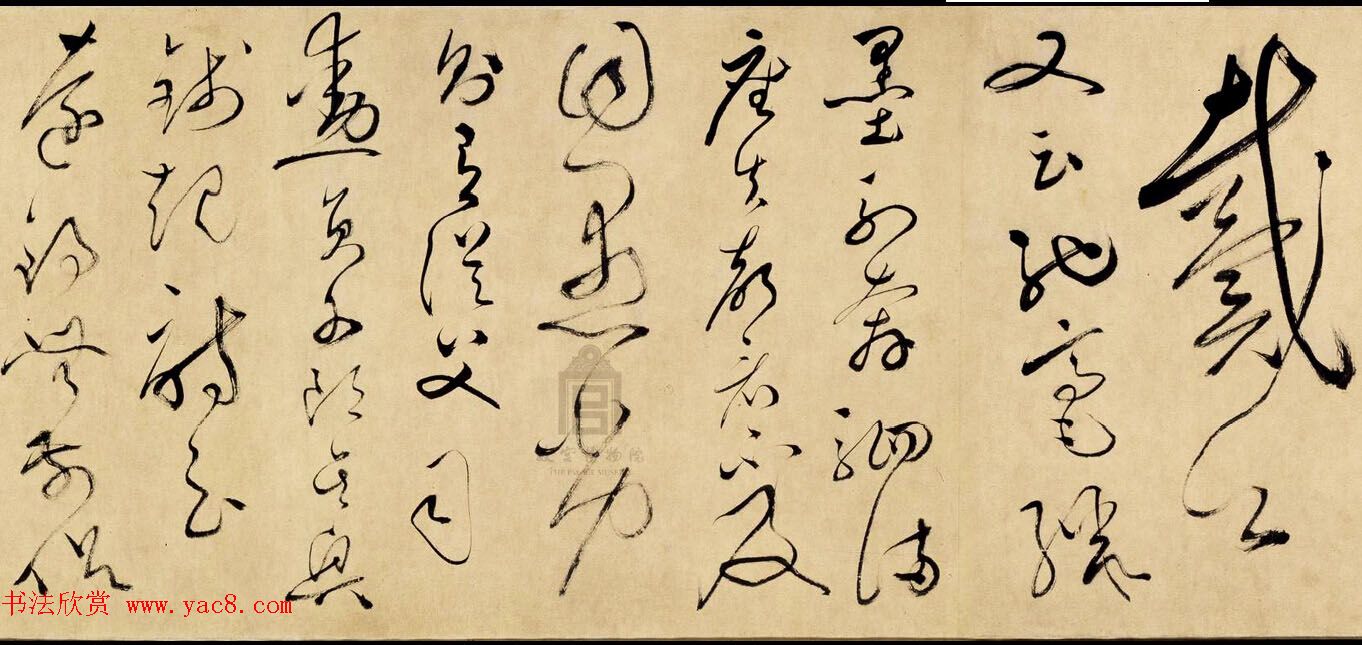 戴公
又云馳毫驟
墨列奔駟滿
座失聲看不及
目愚劣
則有從父司
勳員外郎吳興
錢起詩云
遠錫無前侶
故宫博物院
THE PALACE MUSEUM
书法欣赏 www.yac8.com